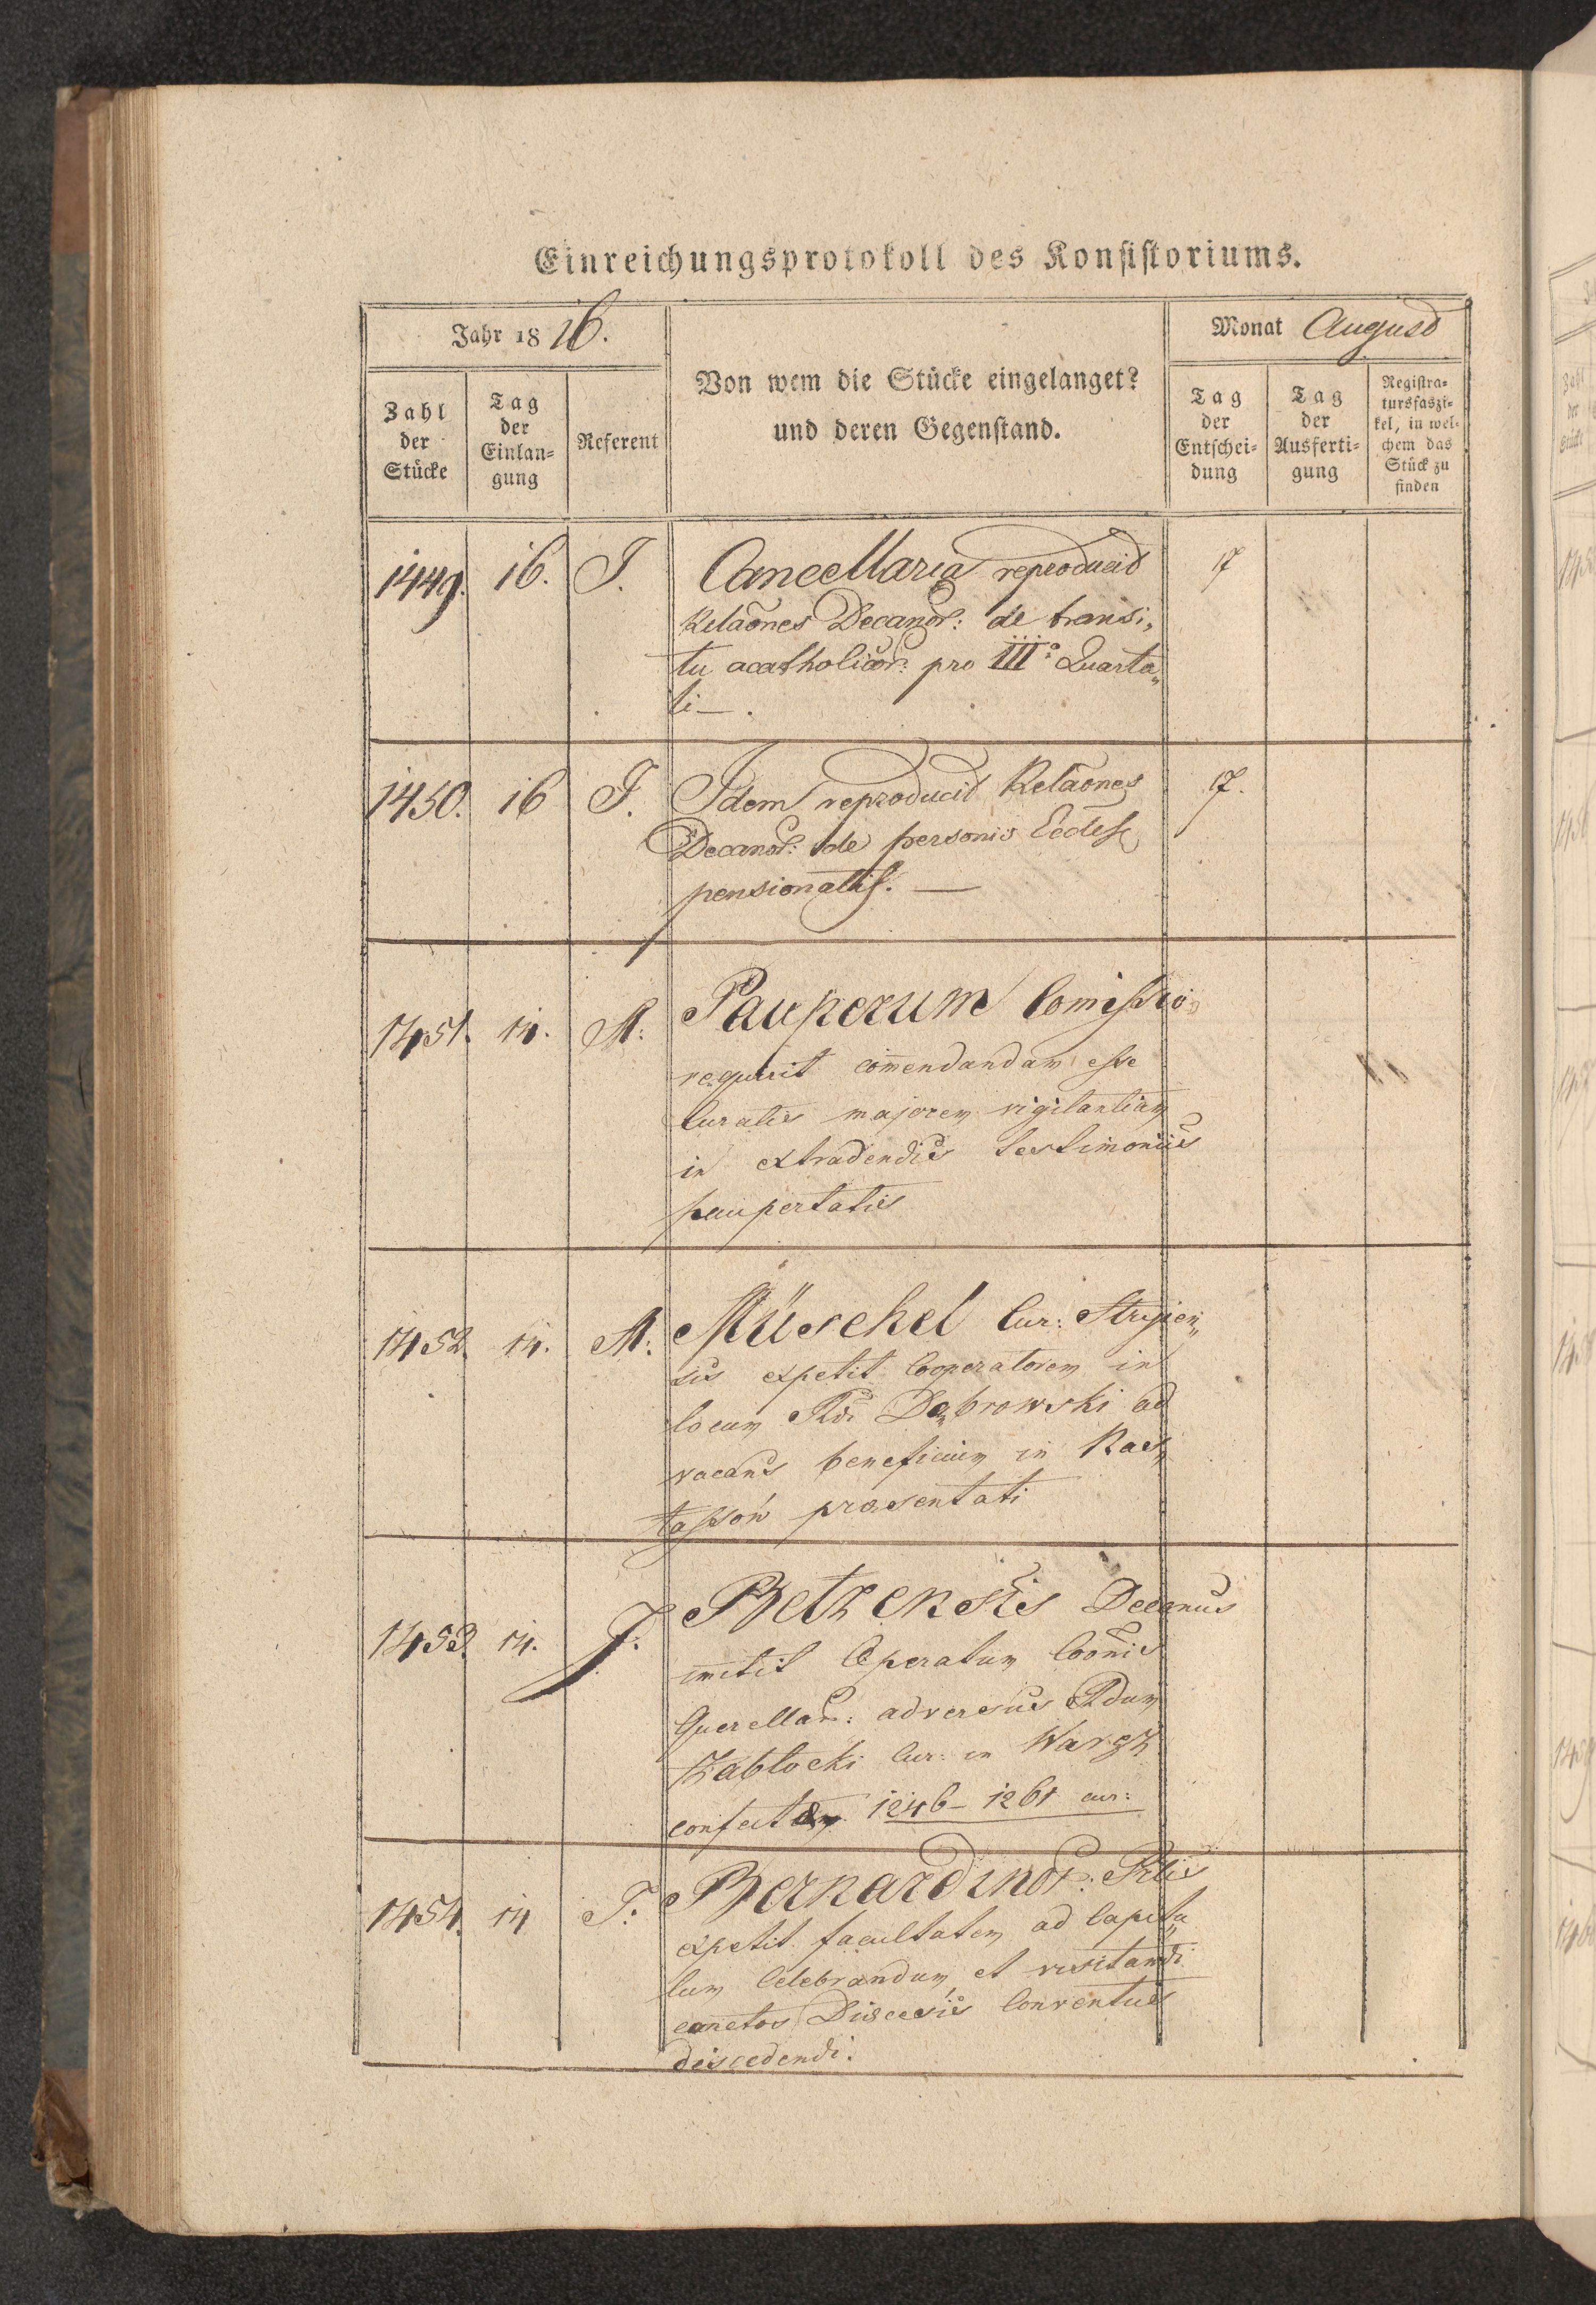 Einreichungsprotokoll des Konsistoriums.
Jahr 1816.
Von wem die Stücke eingelanget?
und deren Gegenstand.
Monat August
Zahl
der
Stücke
Tag
der
Einlan-
gung
Referent
Tag
der
Entschei-
dung
Tag
der
Ausferti-
gung
Registra-
tursfaszi-
kel, in wel-
chem das
Stück zu
finden
1449. 16. J. Cancellaria reproducit 17
Relaōnes Decanor: de transi„
tu acatholicor: pro III° Quarta„
li —.
1450. 16 J. Idem reproducit Relaōnes 17.
Decanor: de personis Eccles
pensionatis. —
1451. 14. M: Pauperum Comissio
requirit com̄endandam esse
Curatis majorem vigilantiam
in extradendis testimoniis
paupertatis
1452. 14. M: Müschel Cur: Stryien„
sis expetit Cooperatorem in
locum Rdi Dąbrowski ad
vacans beneficium in Ras„
tassow praesentati
1453. 14. J: Betzensis Decanus
mitit Operatum Coōnis
Querellar: adversus Rdum
Zabłocki Cur: in Waręz
confectam 1246 – 1261 cur:
1454. 14 J: Bernardinor: Prlis
expetit facultatem ad Capitu„
lum Celebrandum et visitandi
cunctos Diœcesis Conventus
discedendi.